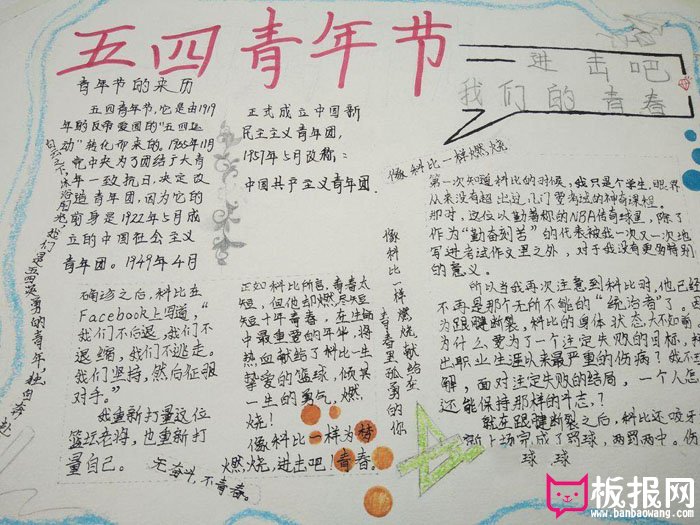 五四青年节
进击吧
我们的青春
青年节的来历
五四青年节,它是由1919
年的反帝爱国的"五四运
动"转化而来的,1935年11月
党中央为了团结广大青
年一致抗日,决定改
造青年团,因为它的
前身是1922年5月成
立的中国社会主义
青年团。1949年4月
正式成立中国新
民主主义青年团,
1957年5月改称,:
中国共产主义青年团.
像科比一样燃烧
第一次知道科比的时候,我只是个学生,眼界
从来没有超出过几门要考试的神奇课程。
那时,这位以勤著称的NBA传奇球星,除了
作为"勤奋刻苦"的代表被我一次又一次地
写进考试作文里之外,对于我没有更多特别
的意义。
所以当我再次注意到科比时,他已经
不再是那个无所不能的"统治者"了。因
为跟腱断裂,科比的身体状态大不如前,
为什么要为了一个注定失败的目标,料
出职业生涯以来最严重的伤病?我不
解,面对注定失败的结局,一个人怎
还能保持那样的斗志,?
就在跟腱断裂之后,科比还咬
上场完成了罚球,两罚两中。伤
球球
确诊之后,科比在
Facebook上写道,"
我们不后退,我们不
退缩,我们不逃走。
我们坚持,然后征服
对手。"
我重新打量这位
篮坛老将,也重新打
量自己。
无奋斗,不青春。
正如科比所言,青春太
短,但他却燃尽短
短十年青春,在生命
中最重要的年华,将
热血献给了科比一生
挚爱的篮球,倾其
一生的勇气,燃
烧!
像科比一样为梦
燃烧,进击吧!青春。
像科比一样燃烧献给在
青春里孤勇的你
我们是五四英勇的青年,独自奔赴
板报网
www.banbaowang.com